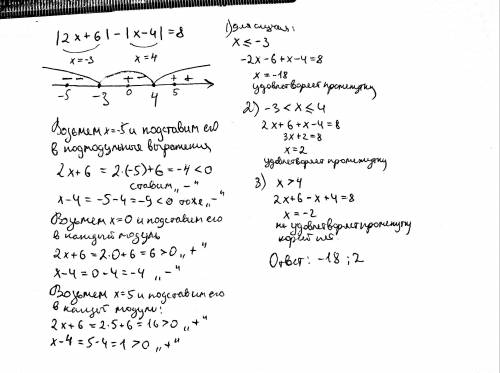 |2x+6|-|x-4|=8
x=-3 x=4
- - + - + +
-5 -3 0 4 5
Возьмем x=-5 и подставим его
в подмодульные выражения
2x+6 = 2·(-5)+6=-4<0
ставим „-“
x-4=-5-4=-9<0 тоже „-“
Возьмем x=0 и подставим его
в каждый модуль
2x+6=2·0+6=6>0 „+“
x-4=0-4=-4 „-“
Возьмем x=5 и подставим его
в каждый модуль:
2x+6=2·5+6=16>0 „+“
x-4=5-4=1>0 „+“
1) для случая:
x≤-3
-2x-6+x-4=8
x=-18
удовлетворяет промежутку
2) -3<x≤4
2x+6+x-4=8
3x+2=8
x=2
удовлетворяет промежутку
3) x>4
2x+6-x+4=8
x=-2
не удовлетворяет промежутку
корней нет
Ответ: -18;2